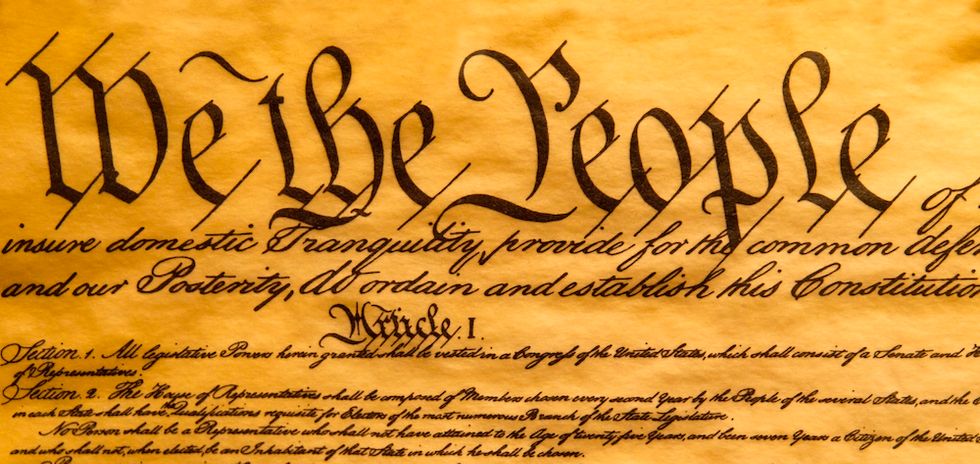 We the People of
insure domestic Tranquility, provide for the common defen
and our Posterity, do ordain and establish this Constitution
Article. I.
Section. 1. All legislative Powers herein granted shall be vested in a Congress of the United States, which shall consist of a Senate and H
of Representatives.
Section. 2. The House of Representatives shall be composed of Members chosen every second Year by the People of the several States, and the
in each State shall have Qualifications requisite for Electors of the most numerous Branch of the State Legislature.
No Person shall be a Representative who shall not have attained to the Age of twenty five Years, and been seven Years a Citizen of the United
and who shall not, when elected, be an Inhabitant of that State in which he shall be chosen.